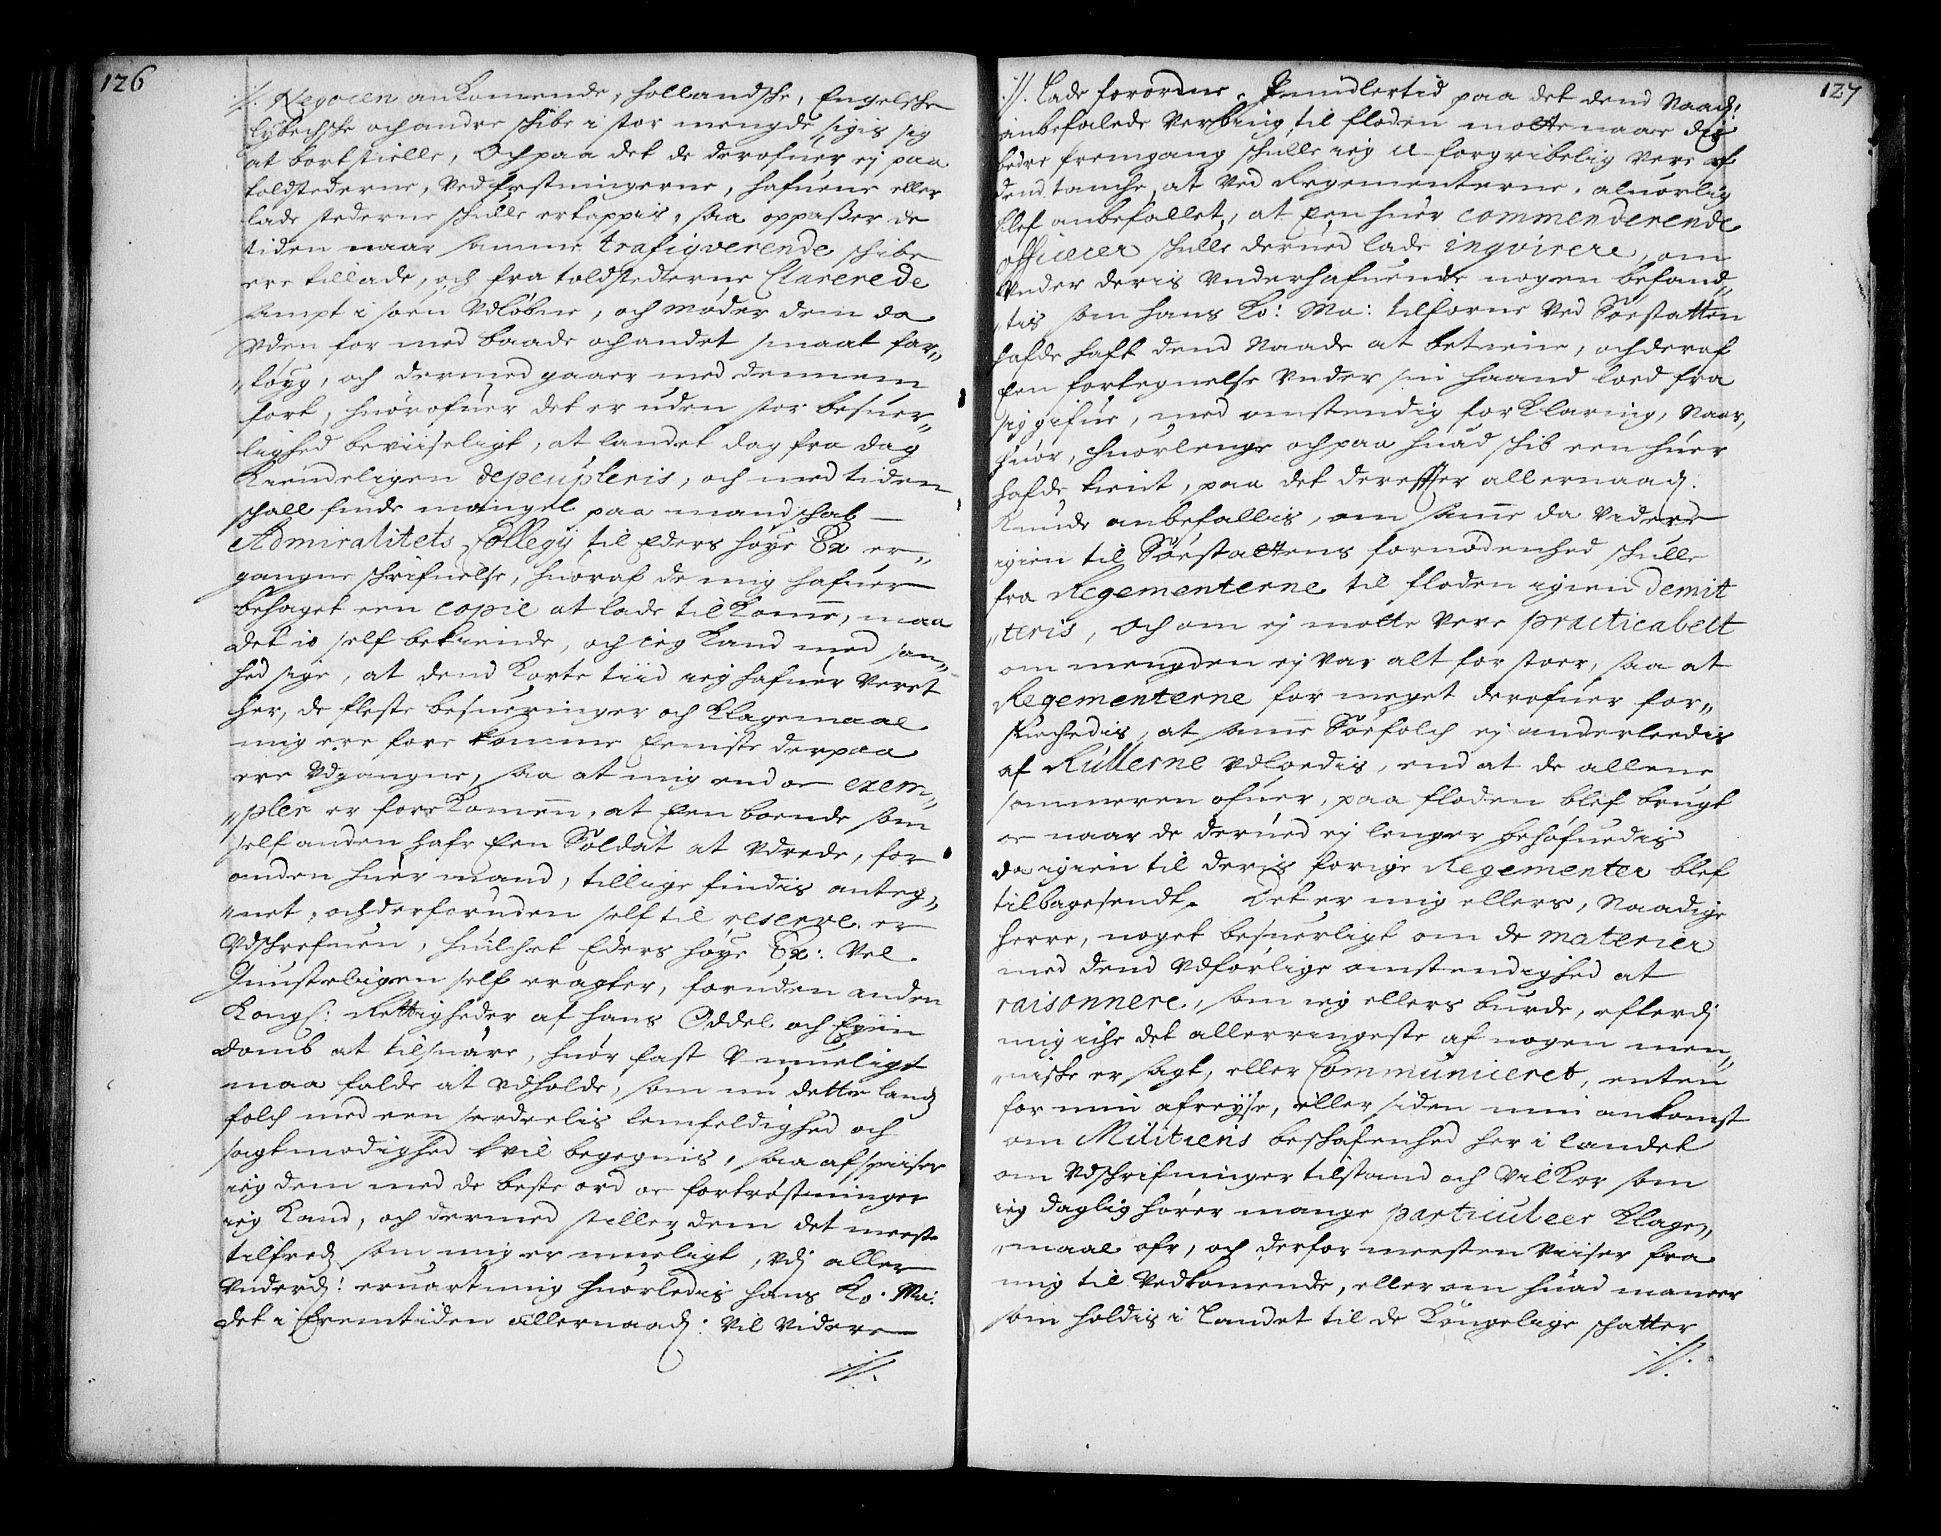 126
./. Negocen ankomende, hollandsche, Engelsche
lybechsche och andre schibe i stor mengde sigis sig
at bortstielle, Och paa det de derofuer ej paa
toldstederne, ved festningerne, hafuene eller
lade stederne schulle ertappis, saa oppasser de
tiden naar samme trafiqverende schibe
ere tillade, och fra toldstederne Clarerede
sampt i søen udløbne, och møder dem da
uden for med baade och andet smaat far„
„tøyg, och dermed gaaer med dennem
fort, huorofuer det er uden stor besuer„
lighed beviiseligt, at landet dag fra dag
Kiendeligen depeupleris, och med tiden
schall finde mangel paa mandschab
Admiralitets Collegij til Eders høye Ex er„
gangne schrifuelse, huoraf de mig hafuer
behaget een copie at lade tilKome, maa
det io self bekiende, och ieg Kand med san„
hed sige, at dend Korte tiid ieg hafuer veret
her, de fleste besueringer och Klagemaal
mig ere fore komme Eeniste derpaa
ere udgangne, saa at mig end oc exem„
„pler er foreKomen, at Een boende som
self anden hafr Een Soldat at udrede, for
anden huer mand, tillige findis anteg„
„net, och derforuden self til reserve er
udschrefuen, huilchet Eders høye Ex: vel
Gunsteligen self eragter, foruden anden
Kongl: Rettigheder af hans Oddel och Eyen
domb at tilsuare, huor fast Umueligt
maa falde at udholde, som nu dette land
folch med een serdeelis lemfeldighed och
sagtmodighed vil begegnis, saa afspiiser
ieg dem med de beste ord oc fortrøstninger
ieg Kand, och dermed stiller dem det meest
tilfreds som mig er mueligt, udj aller
underd: eruartning huorledis hans Ko: Ma:
det i Fremtiden allernaad: vil videre
./.
127
./. lade forordne. Imidlertid paa det dend Naad:
anbefalede Verbing til floden motte naae dis
bedre fremgang schulle ieg U-forgribelig vere af
dend tanche, at ved Regementerne, aluorlig
blef anbefallet, at Een huer commenderende
officeer schulle derued lade inqvirere, om
under deris underhafuende nogen befand„
„tis som hans Ko: Ma: tilforne ved Søestatten
hafde haft dend Naade at betiene, och deraf
een fortegnelse under sin haand loed fra
sig gifue, med omstendig forKlaring, Naar,
huor, huorlenge och paa huad schib een huer
hafde tient, paa det derefter allernaad:
Kunde anbefallis, om same da videre
igien til Søestattens fornødenhed schulle
fra Regementerne til floden igien demit
„teris, Och om ej motte vere practicabelt
om mengden ej var alt for stoer, saa at
Regementerne for meget derofuer for„
suechedis, at same Søefolch ej anderleedis
af Rullerne udloedis, end at de allene
sommeren ofuer, paa floden blef brugt
oc naar de derued ej lenger behøfuedis
da igien til deris forige Regementer blef
tilbagesendt. Det er mig ellers, Naadige
herre, noget besuerligt om de materier
med dend udførlige omstendighed at
raisonnere, som ieg ellers burde, efterdj
mig iche det allerringeste af nogen men„
„niske er sagt, eller Communiceret, enten
for min afreyse, eller siden min ankomst
om Militiens beskafenhed her i landet
om udschrifninger tilstand och vilKor som
ieg daglig hører mange particuleer Klage„
„maal ofr, och derfor meesten viiser fra
mig til vedkomende, eller om huad maneer
som holdis i Landet til de Kongelige schatter
./.